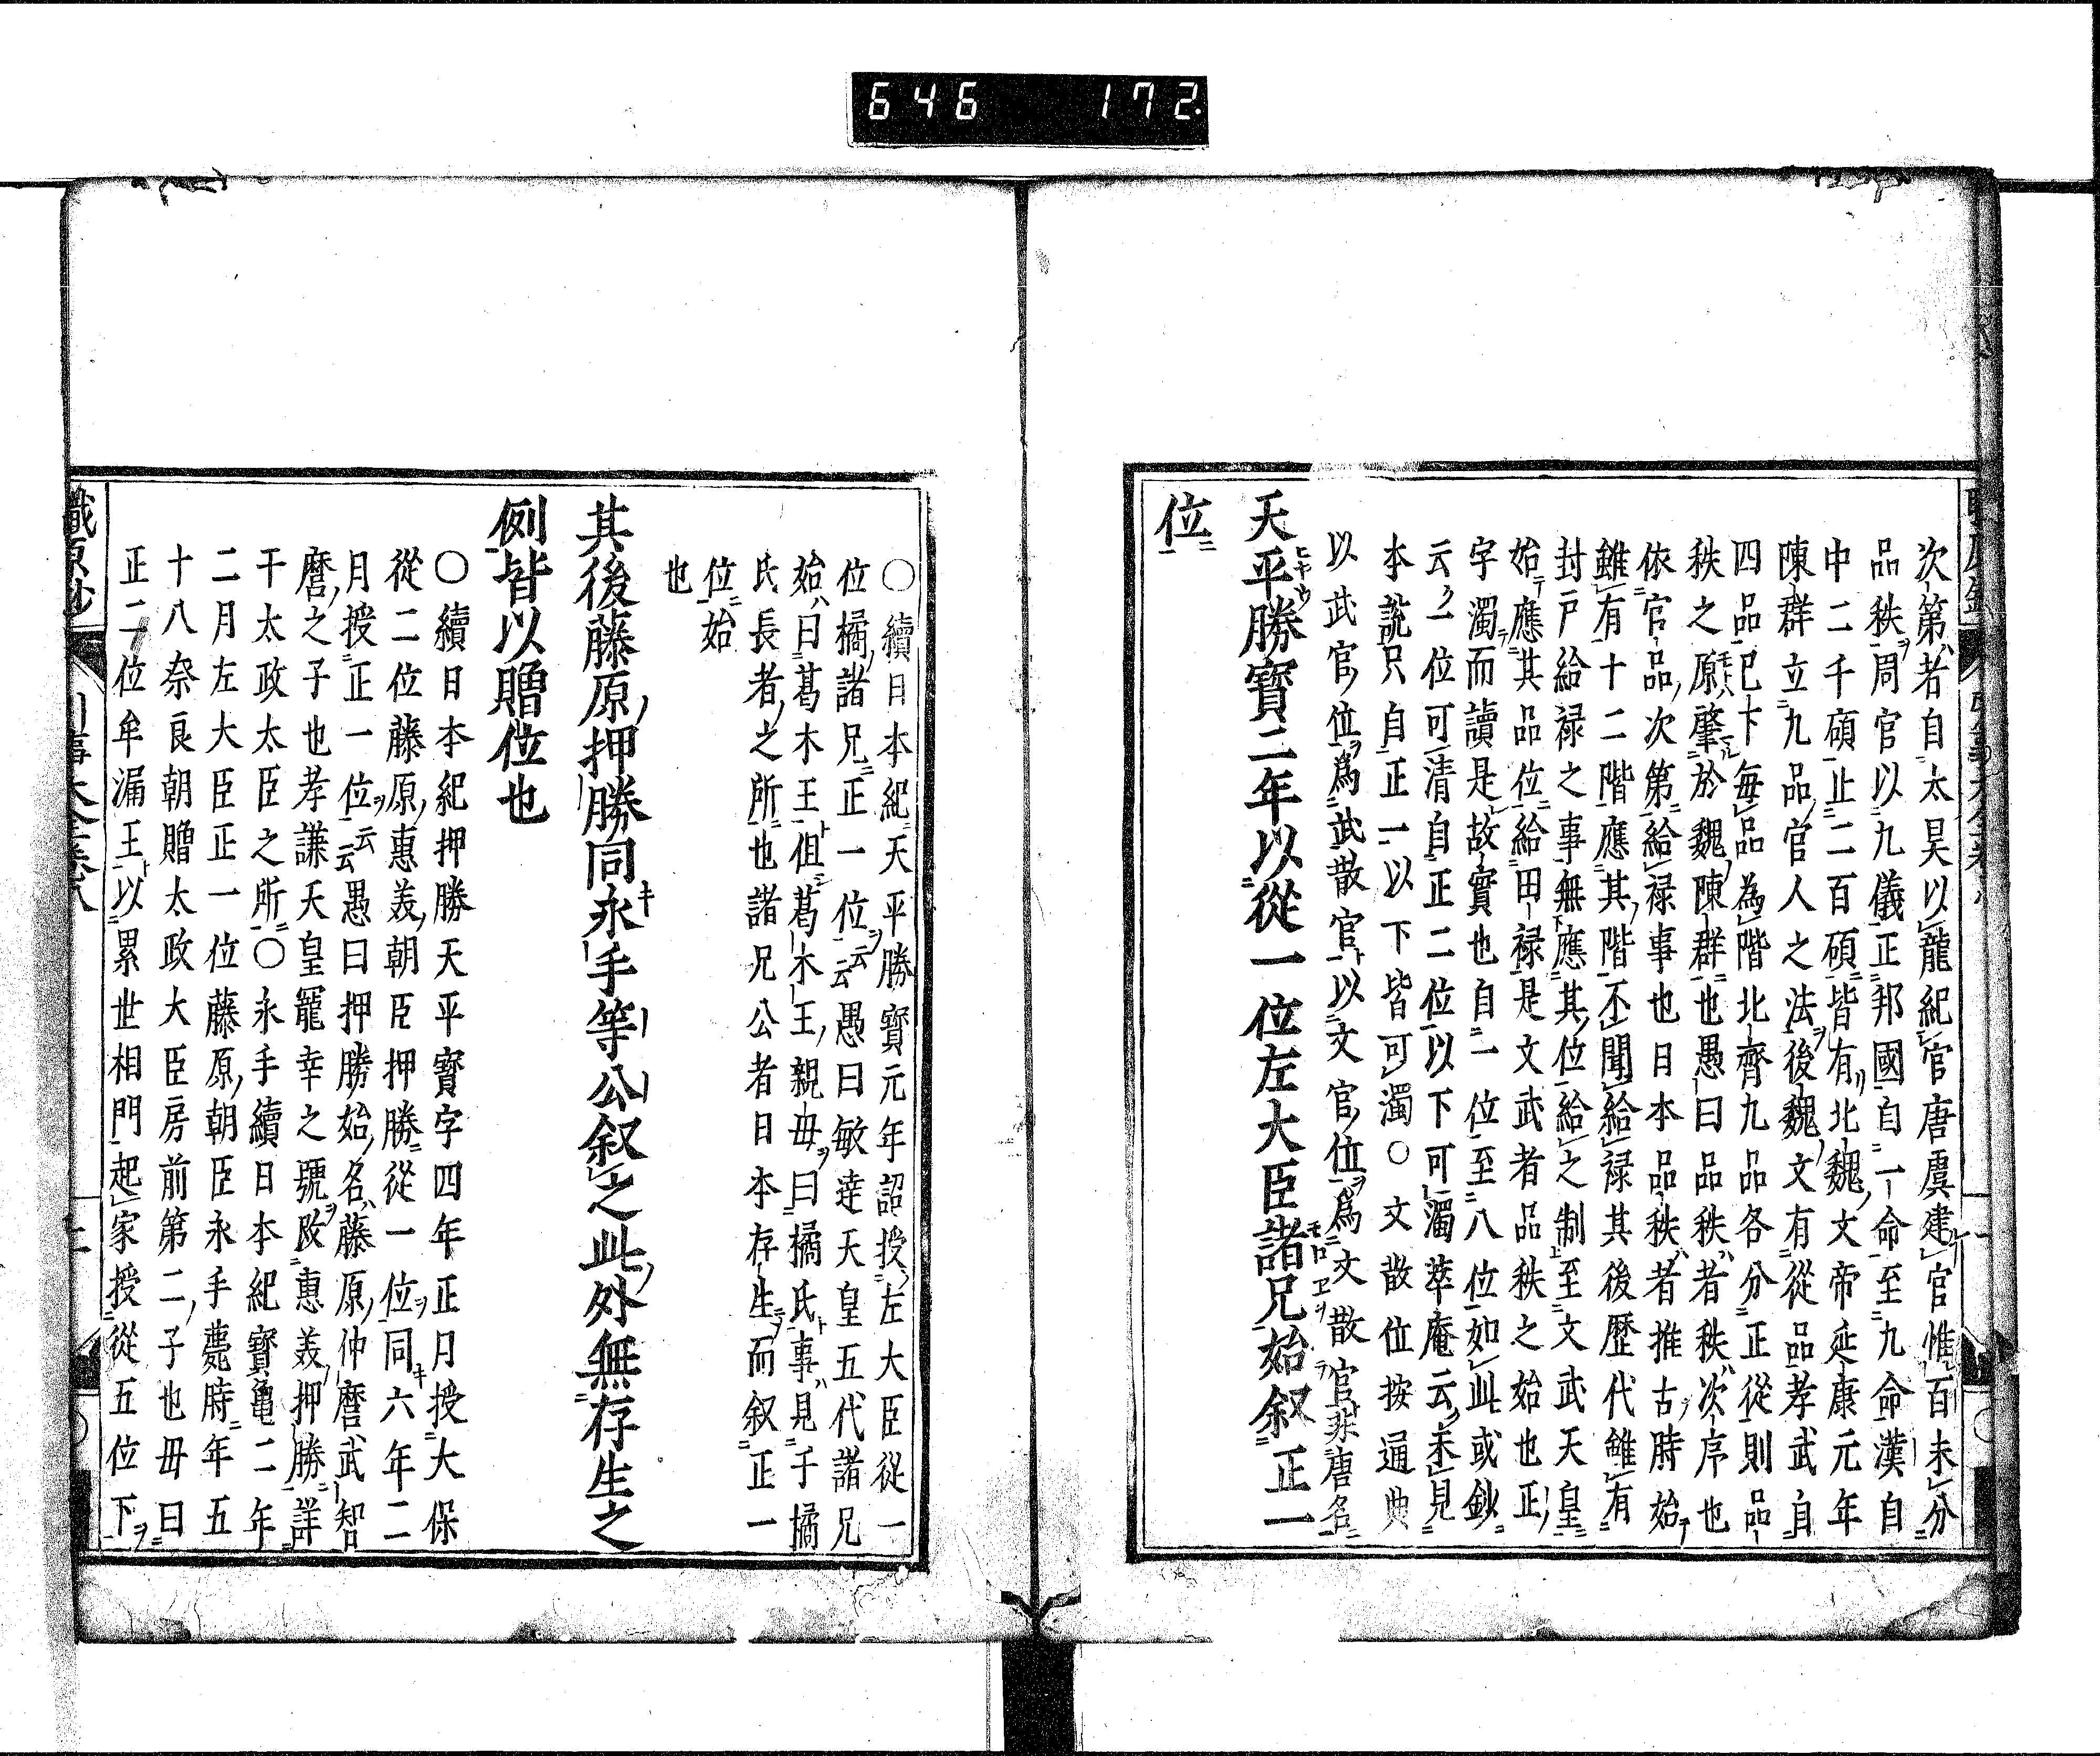 646 172
次第者自太昊以龍紀官唐虞建官惟百未分
品秩周官以九儀正邦國自一命至九命漢自
中二千碩止二百碩皆有北魏文帝延康元年
陳群立九品官人之法後魏文有從品孝武自
四品已下毎品為階北齊九品各分正從則品
秩之原肇於魏陳群也愚曰品秩者秩次序也
依官品次第給禄事也日本品秩者推古時始
雖有十二階應其階不聞給禄其後歴代雖有
封戸給禄之事無應其位給之制至文武天皇
始應其品位給田禄是文武者品秩之始也正
字濁而讀是故實也自一位至八位如此或鈔
云一位可清自正二位以下可濁萃庵云未見
本説只自正一以下皆可濁○文散位按通典
以武官位爲武散官以文官位爲文散官非唐名
天平勝寳二年以從一位左大臣諸兄始叙正一
位
○續日本紀天平勝寳元年詔授左大臣從一
位橘諸兄正一位云云愚曰敏達天皇五代諸兄
始曰葛木王但葛木王親毋曰橘氏事見于橘
氏長者之所也諸兄公者日本存生而叙正一
位始
也
其後藤原押勝同永手等公叙之此外無存生之
例皆以贈位也
○續日本紀押勝天平寳字四年正月授大保
從二位藤原惠美朝臣押勝從一位同六年二
月授正一位云云愚曰押勝始名藤原仲麿武智
麿之子也孝謙天皇寵幸之號改惠美押勝詳
干太政太臣之所○永手續日本紀寳亀二年
二月左大臣正一位藤原朝臣永手薨時年五
十八奈良朝贈太政大臣房前第二子也毋曰
正二位牟漏王以累世相門起家授從五位下
職原抄